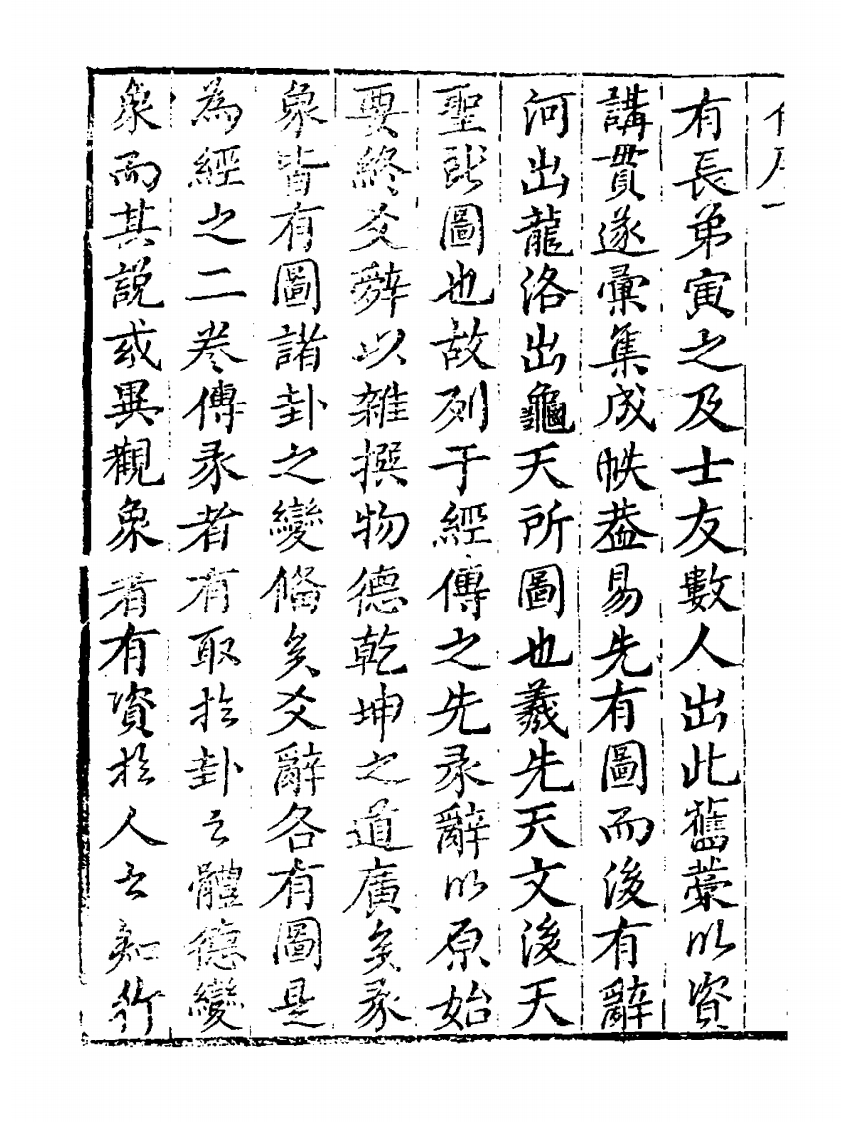 有長弟寅之及士友數人出此舊藁以資
講貫遂彙集成帙葢易先有圖而後有辭
河出龍洛出龜天所圖也羲先天文後天
聖所圖也故列于經傳之先彖辭以原始
要終爻辭以雜撰物德乾坤之道廣矣彖
象皆有圖諸卦之變俻矣爻辭各有圖是
為經之二卷傳彖者有取於卦之體德變
象而其說或異觀象者有資於人之知行